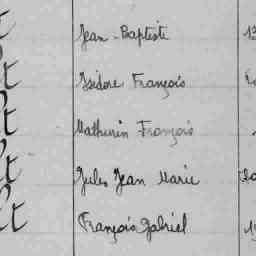 Jean-Baptiste
Isidore François
Mathurin François
Jules Jean Marie
François Gabriel